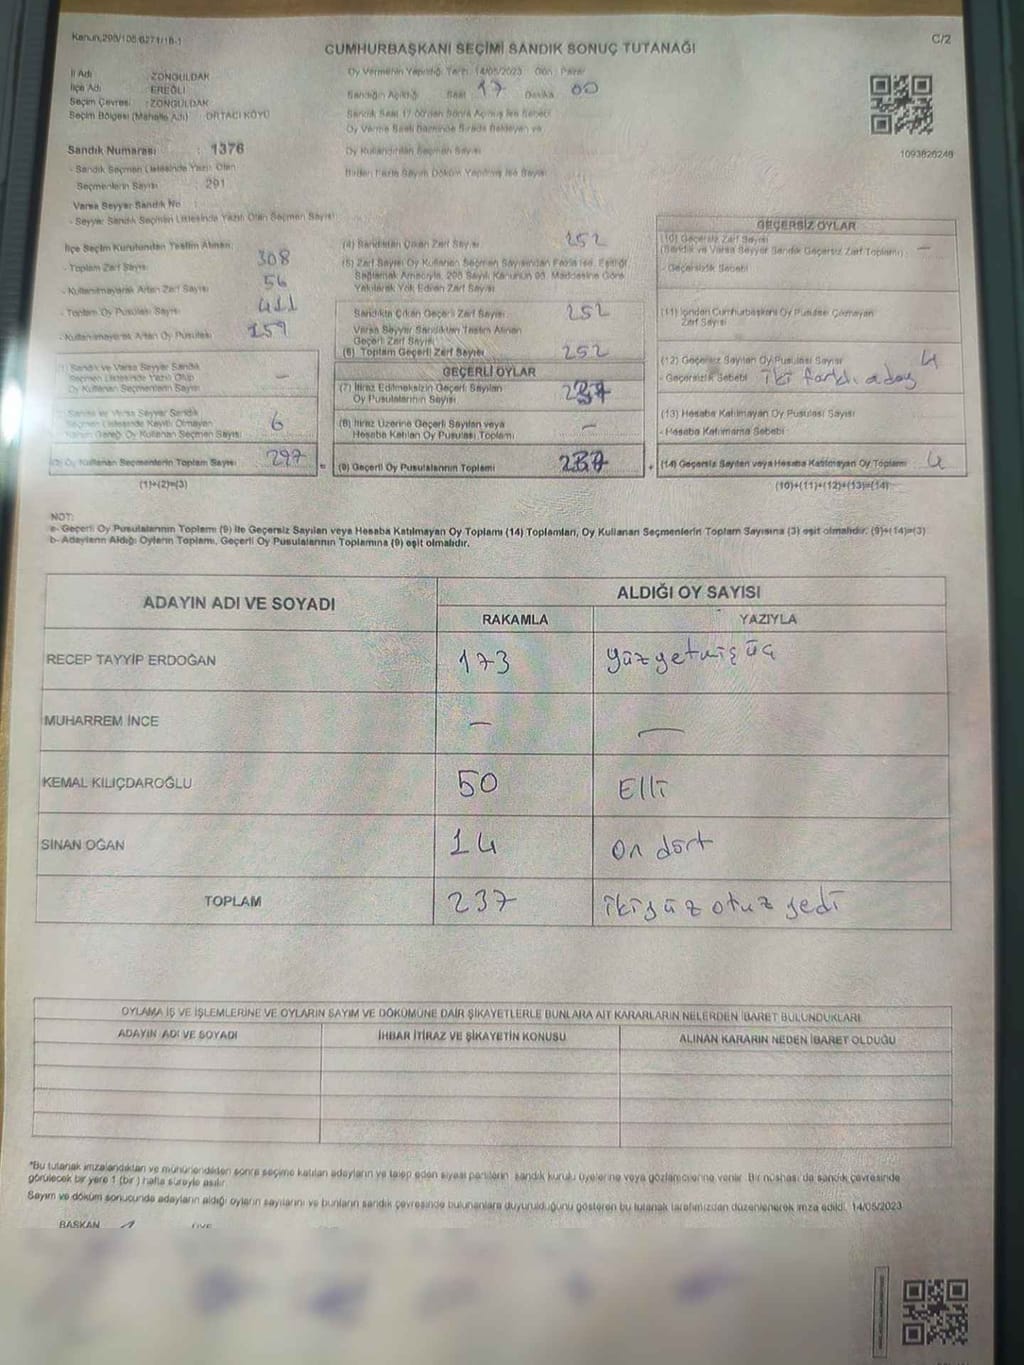 Kanun,298/105:6271/18-1
C/2
CUMHURBAŞKANI SEÇİMİ SANDIK SONUÇ TUTANAĞI
İl Adı : ZONGULDAK
İlçe Adı : EREĞLİ
Seçim Çevresi : ZONGULDAK
Seçim Bölgesi (Mahalle Adı) : ORTACI KÖYÜ
Oy Vermenin Yapıldığı Tarih: 14/05/2023 Gün : Pazar
Sandığın Açıldığı Saat 17 Dakika 00
Sandık Saat 17.00'den Sonra Açılmış İse Sebebi
Oy Verme Saati Bitiminde Sırada Bekleyen ve
Oy Kullandırılan Seçmen Sayısı
Birden Fazla Sayım Döküm Yapılmış İse Sayısı
1093826248
Sandık Numarası : 1376
- Sandık Seçmen Listesinde Yazılı Olan
Seçmenlerin Sayısı : 291
Varsa Seyyar Sandık No :
- Seyyar Sandık Seçmen Listesinde Yazılı Olan Seçmen Sayısı
İlçe Seçim Kurulundan Teslim Alınan;
- Toplam Zarf Sayısı 308
- Kullanılmayarak Artan Zarf Sayısı 56
- Toplam Oy Pusulası Sayısı 411
- Kullanılmayarak Artan Oy Pusulası 159
(1) Sandık ve Varsa Seyyar Sandık
Seçmen Listesinde Yazılı Olup
Oy Kullanan Seçmenlerin Sayısı —
(2) Sandık ve Varsa Seyyar Sandık
Seçmen Listesinde Kayıtlı Olmayan
Kanun Gereği Oy Kullanan Seçmen Sayısı 6
(3) Oy Kullanan Seçmenlerin Toplam Sayısı 297
(1)+(2)=(3)
(4) Sandıktan Çıkan Zarf Sayısı 252
(5) Zarf Sayısı Oy Kullanan Seçmen Sayısından Fazla ise, Eşitliği
Sağlamak Amacıyla, 298 Sayılı Kanunun 98. Maddesine Göre
Yakılarak Yok Edilen Zarf Sayısı
Sandıkta Çıkan Geçerli Zarf Sayısı 252
Varsa Seyyar Sandıktan Teslim Alınan
Geçerli Zarf Sayısı
(6) Toplam Geçerli Zarf Sayısı 252
GEÇERLİ OYLAR
(7) İtiraz Edilmeksizin Geçerli Sayılan
Oy Pusulalarının Sayısı 237
(8) İtiraz Üzerine Geçerli Sayılan veya
Hesaba Katılan Oy Pusulası Toplamı —
= (9) Geçerli Oy Pusulalarının Toplamı 237
GEÇERSİZ OYLAR
(10) Geçersiz Zarf Sayısı
(Sandık ve Varsa Seyyar Sandık Geçersiz Zarf Toplamı) —
- Geçersizlik Sebebi
(11) İçinden Cumhurbaşkanı Oy Pusulası Çıkmayan
Zarf Sayısı
(12) Geçersiz Sayılan Oy Pusulası Sayısı 4
- Geçersizlik Sebebi : iki farklı aday
(13) Hesaba Katılmayan Oy Pusulası Sayısı
- Hesaba Katılmama Sebebi
+ (14) Geçersiz Sayılan veya Hesaba Katılmayan Oy Toplamı 4
(10)+(11)+(12)+(13)=(14)
NOT:
a- Geçerli Oy Pusulalarının Toplamı (9) ile Geçersiz Sayılan veya Hesaba Katılmayan Oy Toplamı (14) Toplamları, Oy Kullanan Seçmenlerin Toplam Sayısına (3) eşit olmalıdır. (9)+(14)=(3)
b- Adayların Aldığı Oyların Toplamı, Geçerli Oy Pusulalarının Toplamına (9) eşit olmalıdır.
ADAYIN ADI VE SOYADI
ALDIĞI OY SAYISI
RAKAMLA YAZIYLA
RECEP TAYYİP ERDOĞAN 173 yüzyetmiş üç
MUHARREM İNCE — —
KEMAL KILIÇDAROĞLU 50 Elli
SİNAN OĞAN 14 on dört
TOPLAM 237 ikiyüz otuz yedi
OYLAMA İŞ VE İŞLEMLERİNE VE OYLARIN SAYIM VE DÖKÜMÜNE DAİR ŞİKAYETLERLE BUNLARA AİT KARARLARIN NELERDEN İBARET BULUNDUKLARI
ADAYIN ADI VE SOYADI İHBAR İTİRAZ VE ŞİKAYETİN KONUSU ALINAN KARARIN NEDEN İBARET OLDUĞU
*Bu tutanak imzalandıktan ve mühürlendikten sonra seçime katılan adayların ve talep eden siyasi partilerin sandık kurulu üyelerine veya gözlemcilerine verilir. Bir nüshası da sandık çevresinde
görülecek bir yere 1 (bir) hafta süreyle asılır.
Sayım ve döküm sonucunda adayların aldığı oyların sayılarını ve bunların sandık çevresinde bulunanlara duyurulduğunu gösteren bu tutanak tarafımızdan düzenlenerek imza edildi. 14/05/2023
BAŞKAN ÜYE